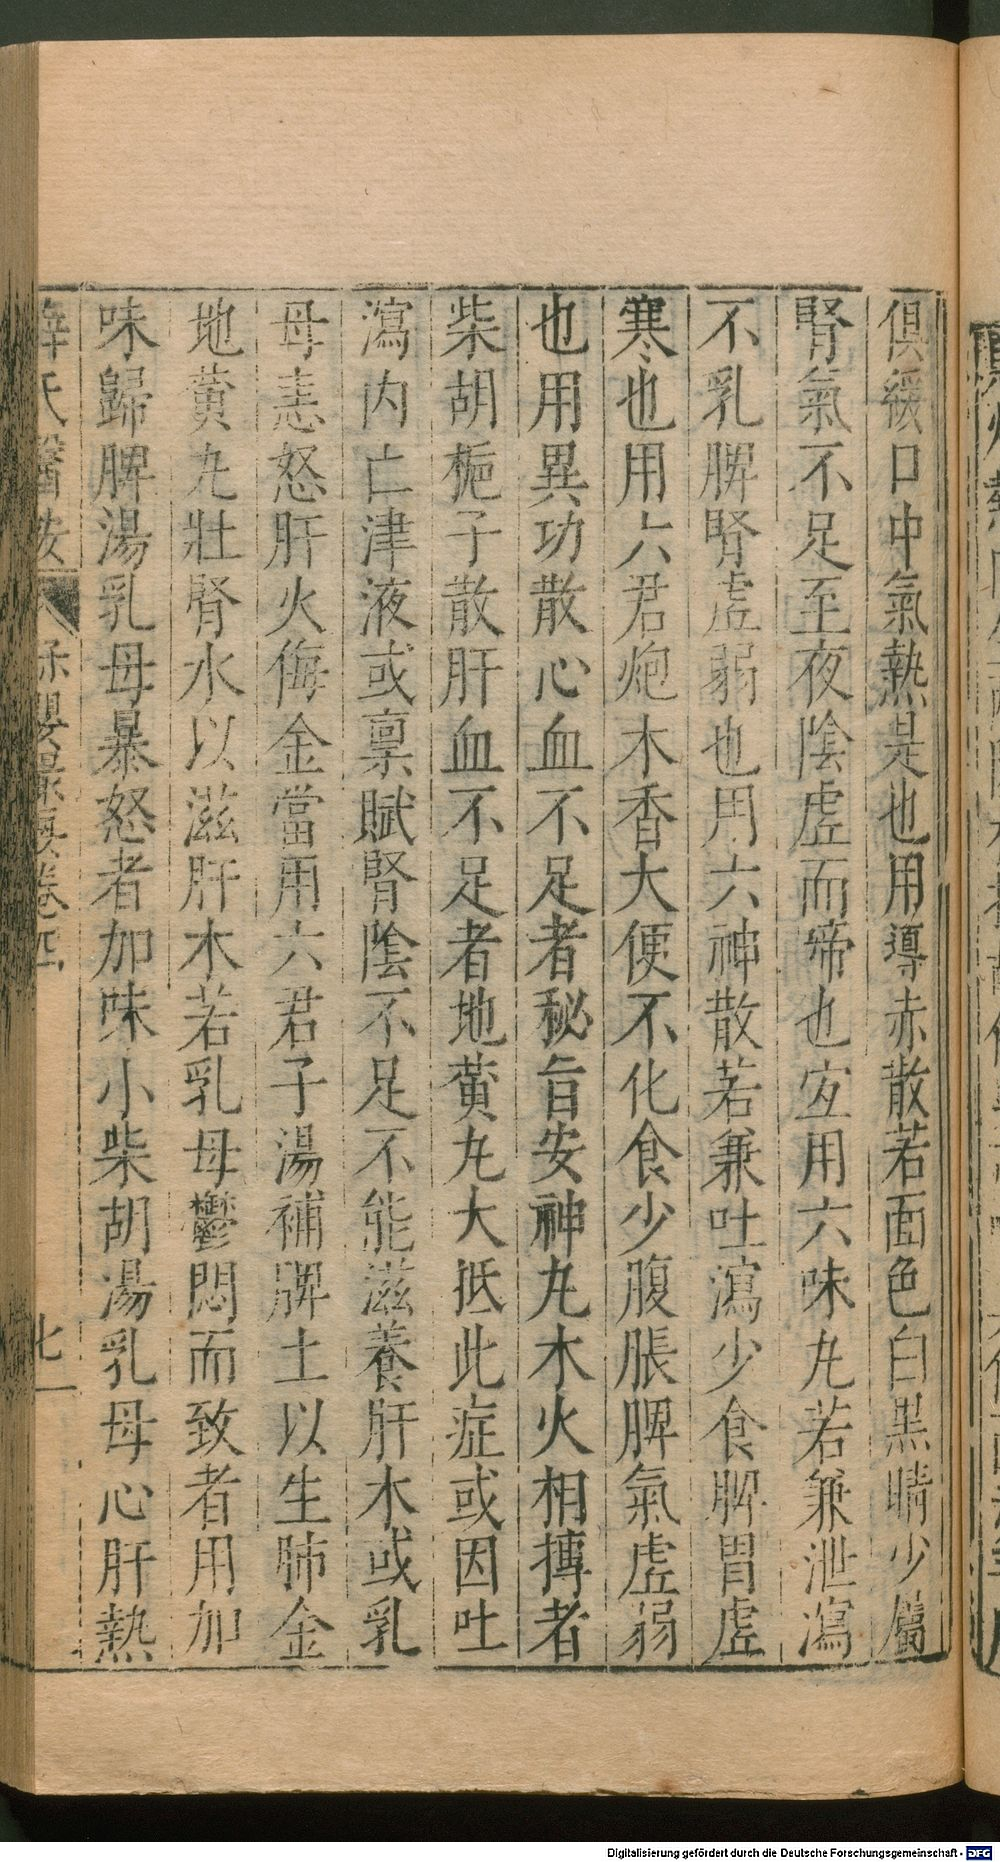 俱緩口中氣熱是也用導赤散若面色白黑睛少屬
腎氣不足至夜陰虛而啼也宜用六味丸若兼泄瀉
不乳脾腎虛弱也用六神散若兼吐瀉少食脾胃虛
寒也用六君炮木香大便不化食少腹脹脾氣虛弱
也用異功散心血不足者秘旨安神丸木火相搏者
柴胡梔子散肝血不足者地黄丸大抵此症或因吐
瀉內亡津液或稟賦腎陰不足不能滋養肝木或乳
母恚怒肝火侮金當用六君子湯補脾土以生肺金
地黄丸壯腎水以滋肝木若乳母鬱悶而致者用加
味歸脾湯乳母暴怒者加味小柴胡湯乳母心肝熱
薛氏醫按 保嬰撮要卷四 七一
Digitalisierung gefördert durch die Deutsche Forschungsgemeinschaft - DFG